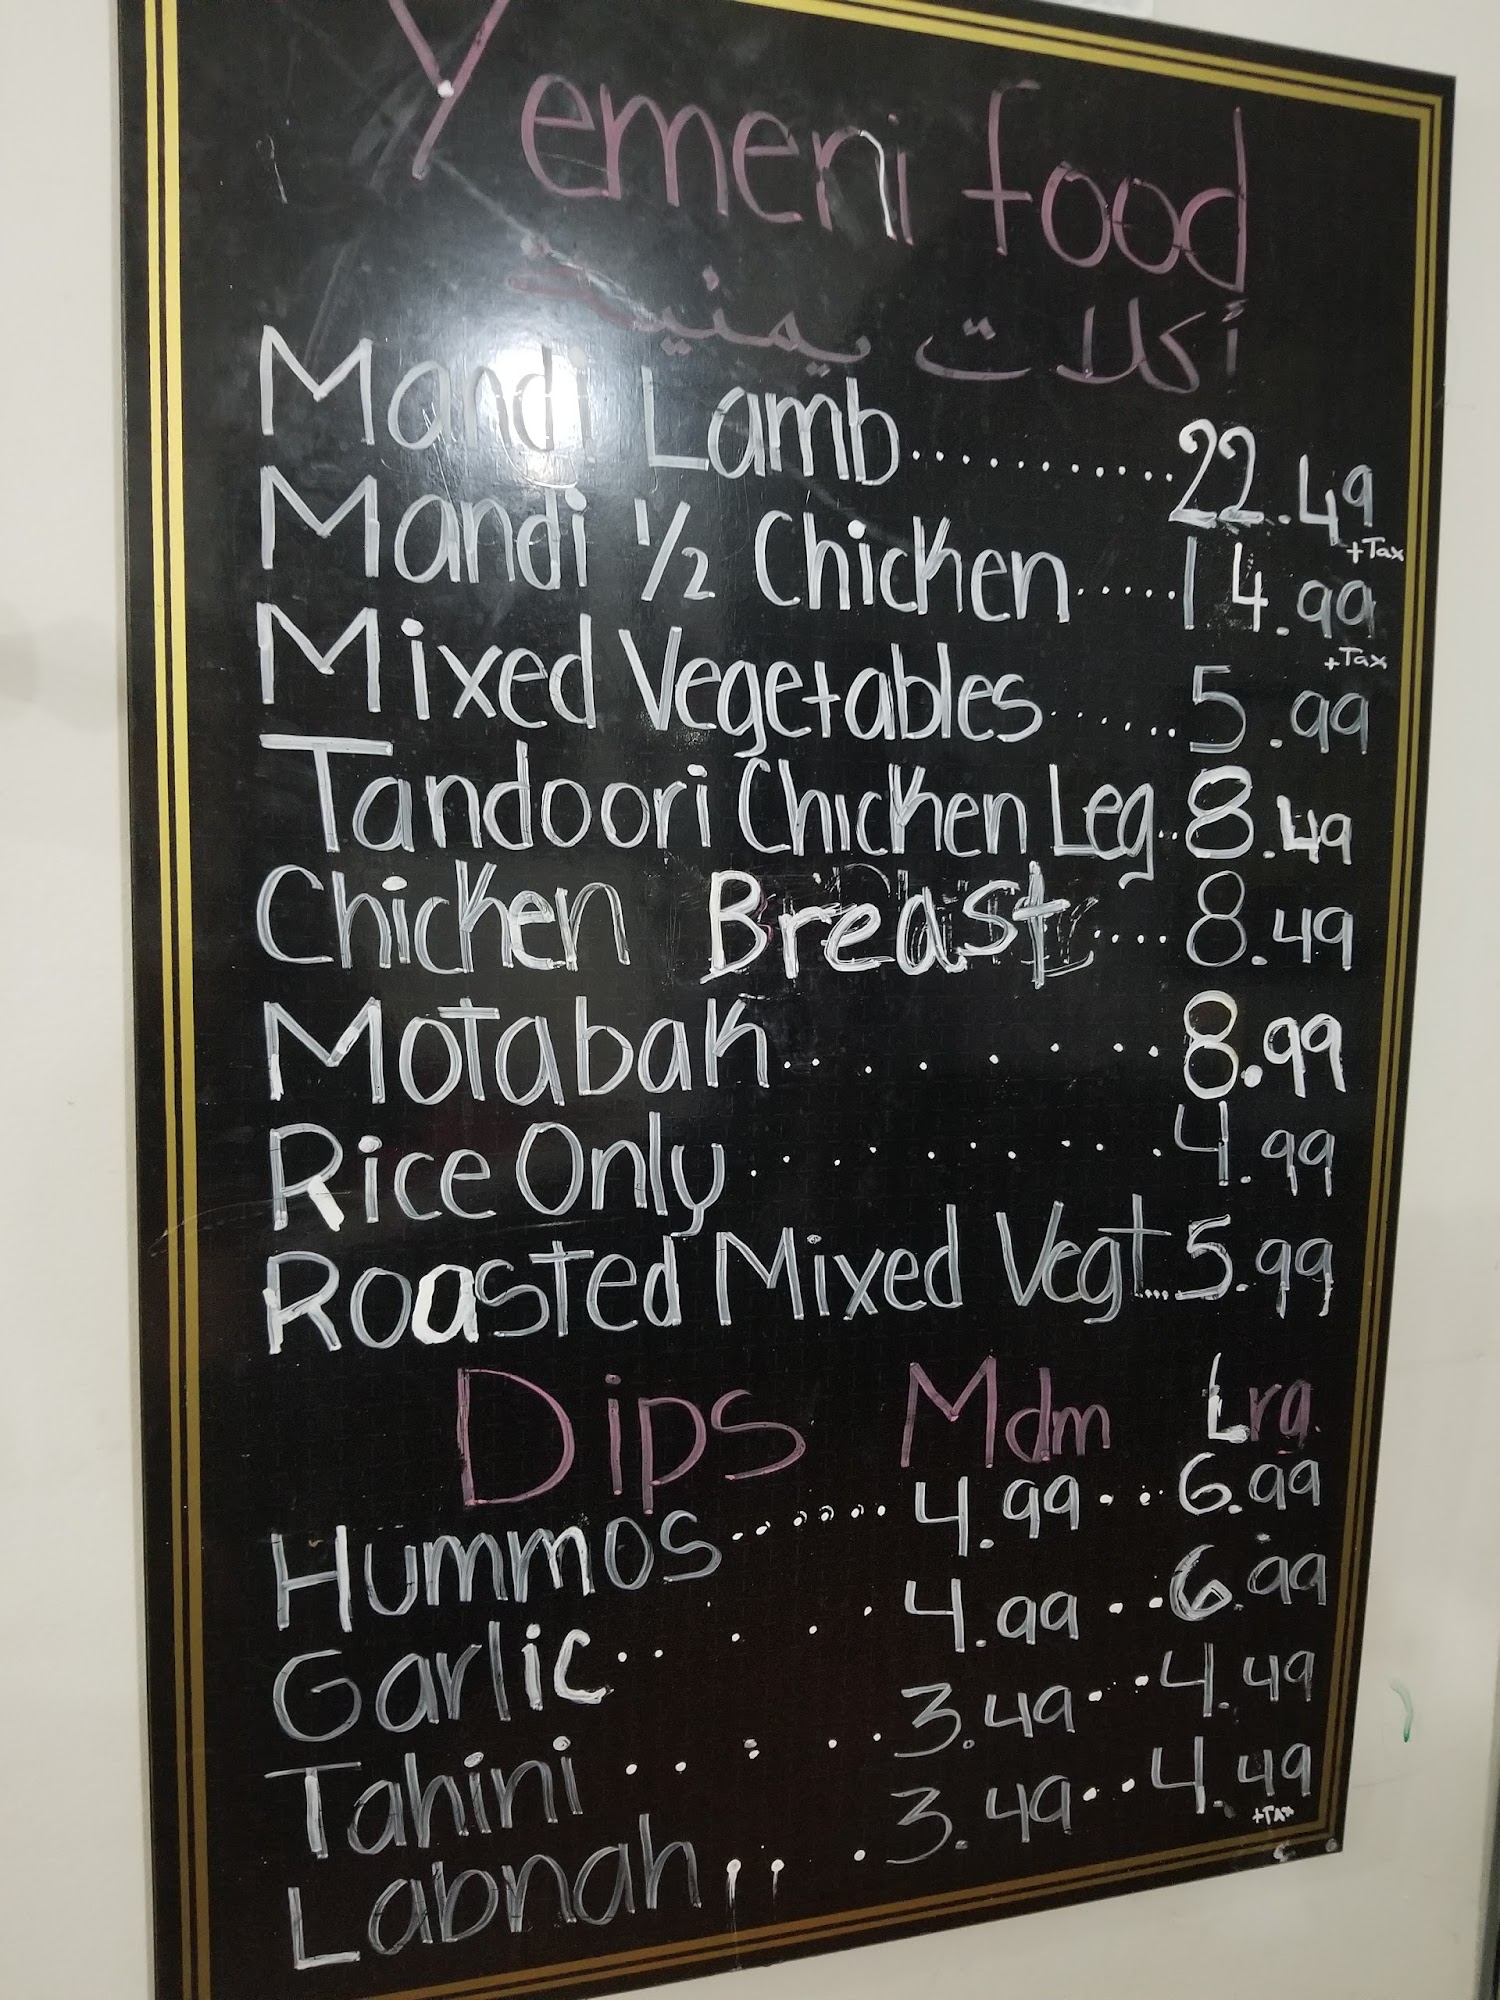 Yemeni food
أكلات يمنية
Mandi Lamb........... 22.49
+Tax
Mandi 1/2 Chicken..... 14.99
+Tax
Mixed Vegetables...... 5.99
Tandoori Chicken Leg.. 8.49
Chicken Breast.... 8.49
Motabak...... 8.99
Rice Only....... 4.99
Roasted Mixed Vegt... 5.99
Dips Mdm Lrg.
Hummos....... 4.99... 6.99
Garlic..... 4.99... 6.99
Tahini..... 3.49... 4.49
Labnah.... 3.49... 4.49
+Tax